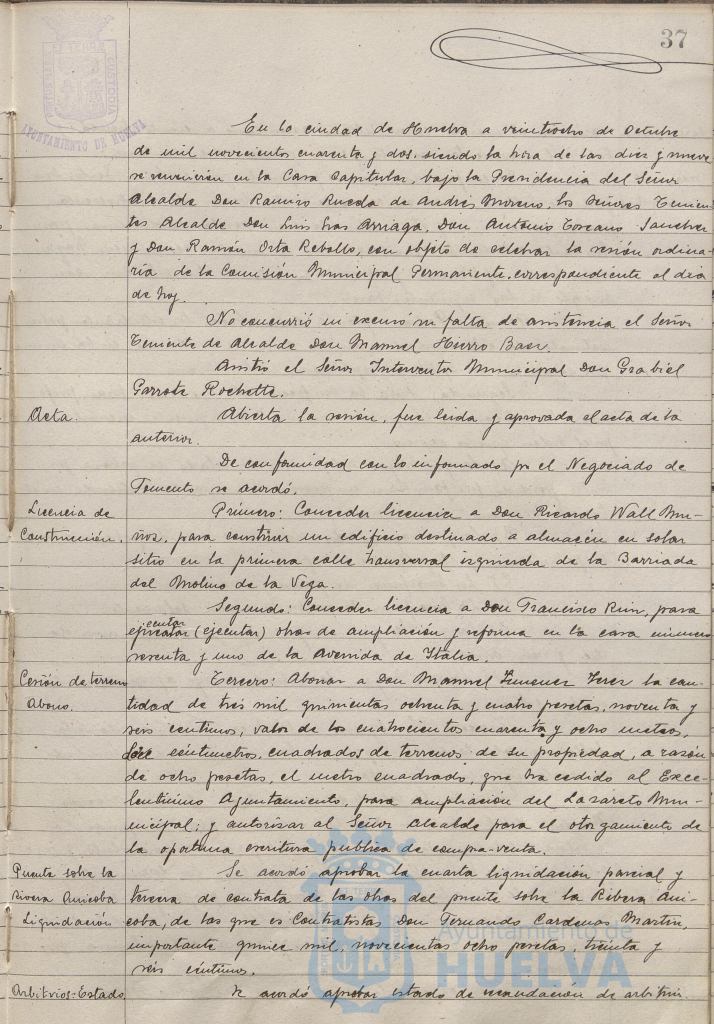 37
AYUNTAMIENTO DE HUELVA
En la ciudad de Huelva a veintiocho de Octubre
de mil novecientos cuarenta y dos, siendo la hora de las diez y nueve
se reunieron en la Casa Capitular, bajo la Presidencia del Señor
Alcalde Don Ramiro Rueda de Andrés Moreno, los Señores Tenien-
tes Alcalde Don Luis Gras Arriaga, Don Antonio Toscano Sanchez
y Don Ramón Orta Rebollo, con objeto de celebrar la sesión ordina-
ria de la Comisión Municipal Permanente, correspondiente al dia
de hoy.
No concurrió ni excusó su falta de asistencia el Señor
Teniente de Alcalde Don Manuel Hierro Baer.
Asistió el Señor Interventor Municipal Don Grabiel
Garrote Rochette.
Acta.
Abierta la sesión, fue leida y aprovada el acta de la
anterior.
De conformidad con lo informado por el Negociado de
Fomento se acordó.
Licencia de
Construcción.
Primero: Conceder licencia a Don Ricardo Wall Mu-
ñoz, para construir un edificio destinado a almacén en solar
sitio en la primera calle transversal izquierda de la Barriada
del Molino de la Vega.
Segundo: Conceder licencia a Don Francisco Ruiz, para
(ejecutar) obras de ampliación y reforma en la casa número
sesenta y uno de la Avenida de Italia.
Cesión de terreno
Abono.
Tercero: Abonar a Don Manuel Jimenez Jerez la can-
tidad de tres mil quinientas ochenta y cuatro pesetas, noventa y
seis centimos, valor de los cuatrocientos cuarenta y ocho metros,
doce céntimetros, cuadrados de terrenos de su propiedad, a razón
de ocho pesetas, el metro cuadrado, que ha cedido al Exce-
lentísimo Ayuntamiento, para ampliación del Lazareto Mun-
nicipal; y autorizar al Señor Alcalde para el otorgamiento de
la oportuna escritura publica de compra-venta.
Puente sobre la
rivera Anicoba
Liquidación
Se acordó aprobar la cuarta liquidación parcial y
tercera de contrata de las obras del puente sobre la Ribera Ani-
coba, de las que es Contratista Don Fernando Cardenas Martin,
importante quince mil, novecientas ocho pesetas, treinta y
seis céntimos.
Arbitrios: Estado
Se acordó aprobar estado de recaudación de arbitrios
Ayuntamiento de
HUELVA